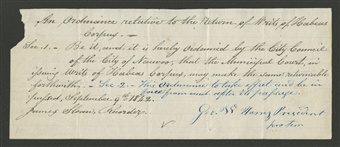 An Ordinance relative to the Return of Writs of Habeas
Corpus. —
Sec. 1. — Be it, and it is hereby ordained by the City Council
of the City of Nauvoo, that the Municipal Court, in
issuing Writs of Habeas Corpus, may make the same returnable
forthwith. — Sec. 2. — This Ordinance to take effect and be in
force from and after its passage.
passed, September 9th 1842.
James Sloan, Recorder.
Geo. W. Harris President
pro tem